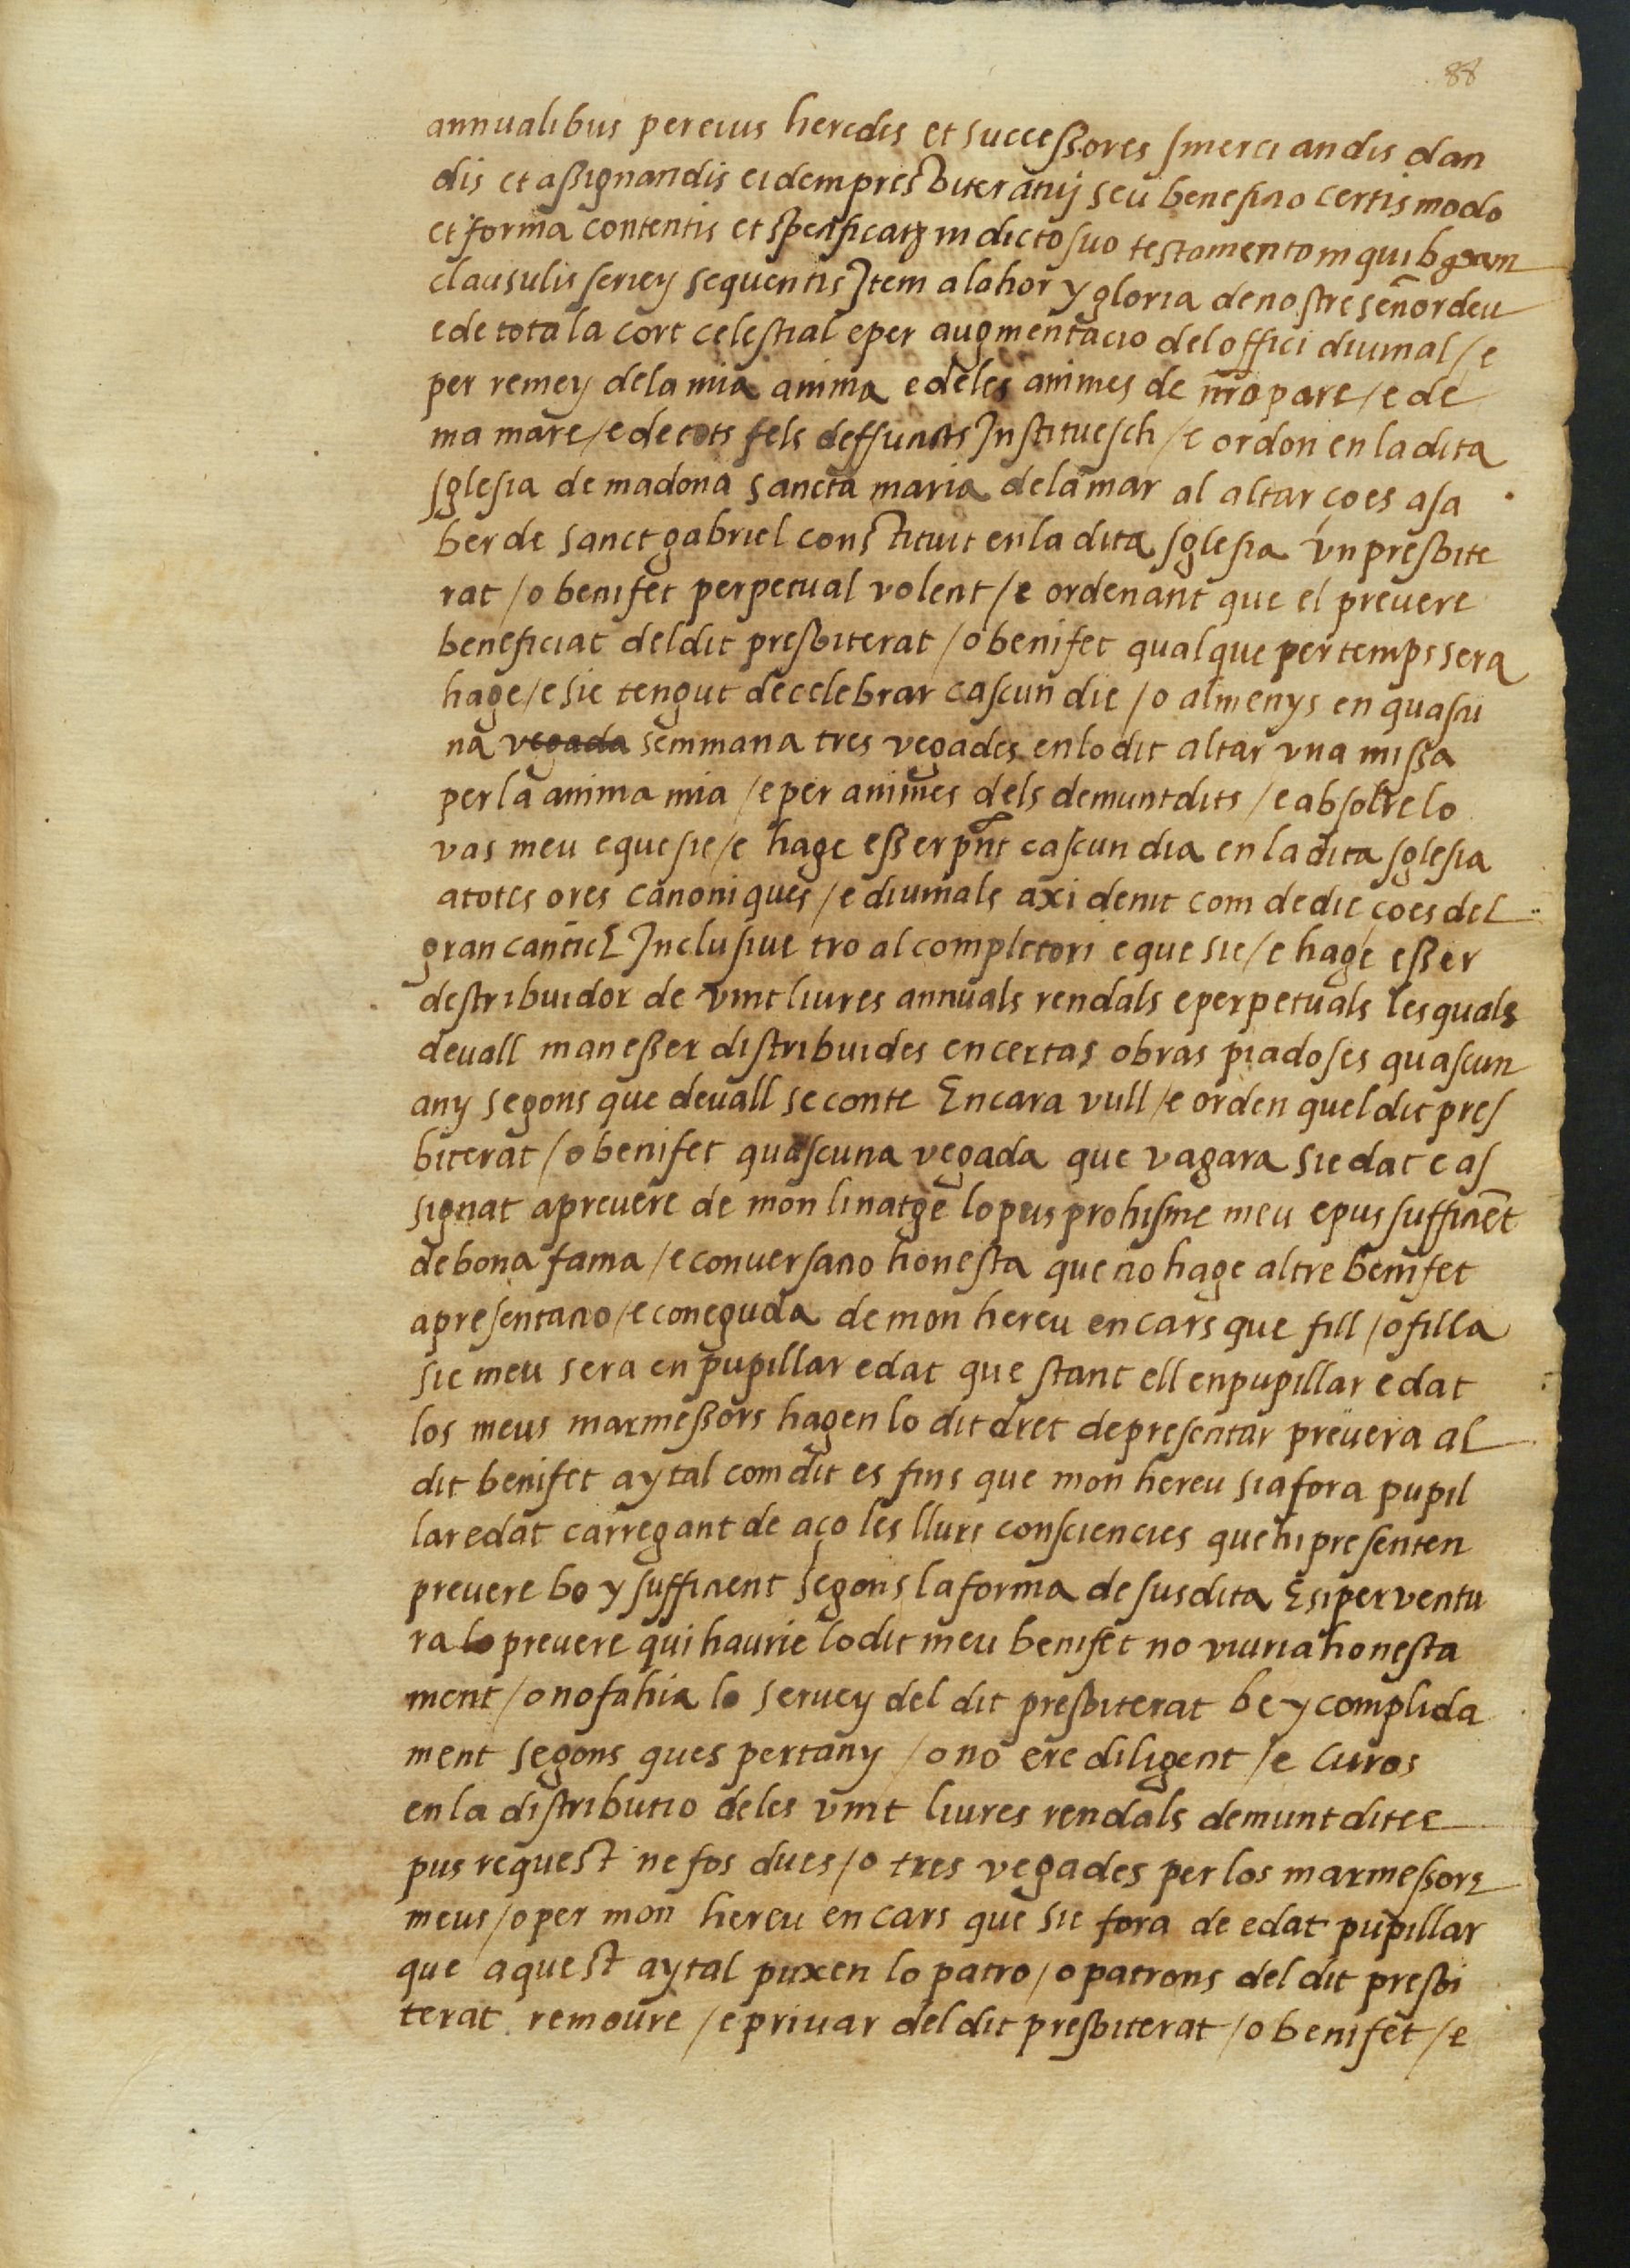 88
annualibus per eius heredes et successores smerciandis dan
dis et assignandis eidem presbiteratuj seu beneficio certis modo
et forma contentis et specificatz in dicto suo testamento in quibz
clausulis seriey sequentis Item a lohor y gloria de nostre señor deu
e de tota la cort celestial e per augmentacio del offici diurnal / e
per remey de la mia anima e de les animes de mõ pare / e de
ma mare / e de tots fels deffuncts Instituesch / e ordon en la dita
sglesia de madona sancta maria de la mar al altar ço es a sa
ber de sanct gabriel constituit en la dita sglesia vn presbite
rat / o benifet perpetual volent / e ordenant que el preuere
beneficiat del dit presbiterat / o benifet qual que per temps sera
hage / e sie tengut de celebrar cascun die / o almenys en quascu
na vegada semmana tres vegades en lo dit altar vna missa
per la anima mia / e per animes dels demunt dits / e absolre lo
vas meu e que sie / e hage esser pñt cascun dia en la dita sglesia
a totes ores canoniques / e diurnals axi de nit com de die ço es del
gran cantich Inclusiue tro al completori e que sie / e hage esser
destribuidor de vint liures annuals rendals e perpetuals les quals
deuall man esser distribuides en certas obras piadoses quascun
any segons que deuall se conte Encara vull / e orden quel dit pres
biterat / o benifet quascuna vegada que vagara sie dat e as
signat a preuere de mon linatge lo pus prohisme meu e pus sufficiẽt
de bona fama / e conuersacio honesta que no hage altre benifet
a presentacio / e coneguda de mon hereu en cars que fill / o filla
sie meu sera en pupillar edat que stant ell en pupillar edat
los meus marmessors hagen lo dit dret de presentar preuera al
dit benifet aytal com dit es fins que mon hereu sia fora pupil
lar edat carregant de aço les llurs consciencies que hi presenten
preuere bo y sufficient segons la forma desusdita E si per ventu
ra lo preuere qui haurie lo dit meu benifet no viuria honesta
ment / o no fahia lo seruey del dit presbiterat be y complida
ment segons ques pertany / o no ere diligent / e curos
en la distributio de les vint liures rendals demunt dites
pus request ne fos dues / o tres vegades per los marmessors
meus / o per mon hereu en cars que sie fora de edat pupillar
que aquest aytal puxen lo patro / o patrons del dit presbi
terat remoure / e priuar del dit presbiterat / o benifet / e